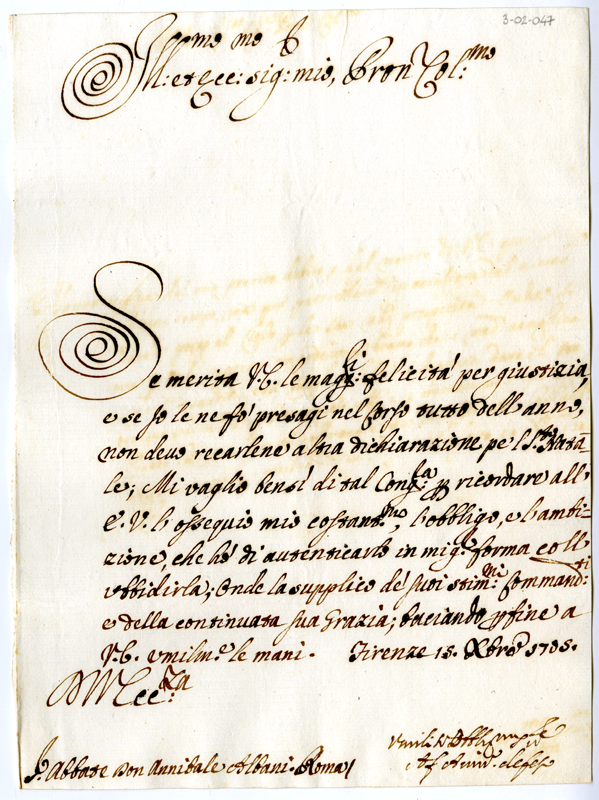 3-02-047
Ill:mo et Ecc:mo Sig:r mio, Pron Col:mo
Se merita V.E. le magg:ri felicitá per giustizia,
e se io le ne fó presagi nel corso tutto dell anno,
non devo recarlene altra dichiarazione pe l S.to Nata-
le; Mi vaglio bensí di tal Cong:ra p ricordare all
E.V. l ossequio mio costant:mo, l obbligo, e l ambi-
zione, che hó di autenticarlo in mig:e forma coll
ubbidirla; Onde la supplico de suoi stim:mi Command:ti
e della continuata sua Grazia; baciando p fine a
V.E. umilm:e le mani. Firenze 15. Xbre 1705.
D V Ecc:za
S. Abbate Don Annibale Albani. Roma